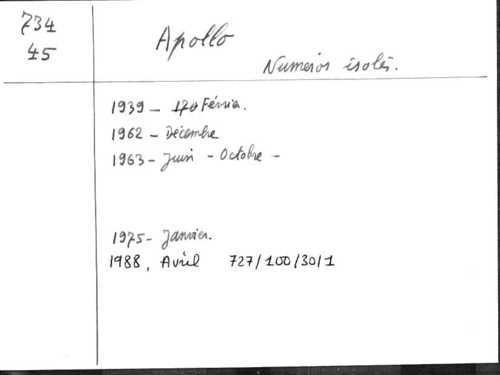 734
45
Apollo
Numeros isolés.
1939 - Février.
1962 - Décembre
1963 - Juin - Octobre -
1975 - Janvier.
1988, Avril 727/100/30/1